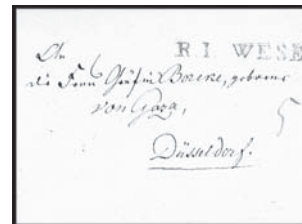 An
R.I. WESE
die Frau Gräfin Borcke, geborne
von Gaza,
Düsseldorf.